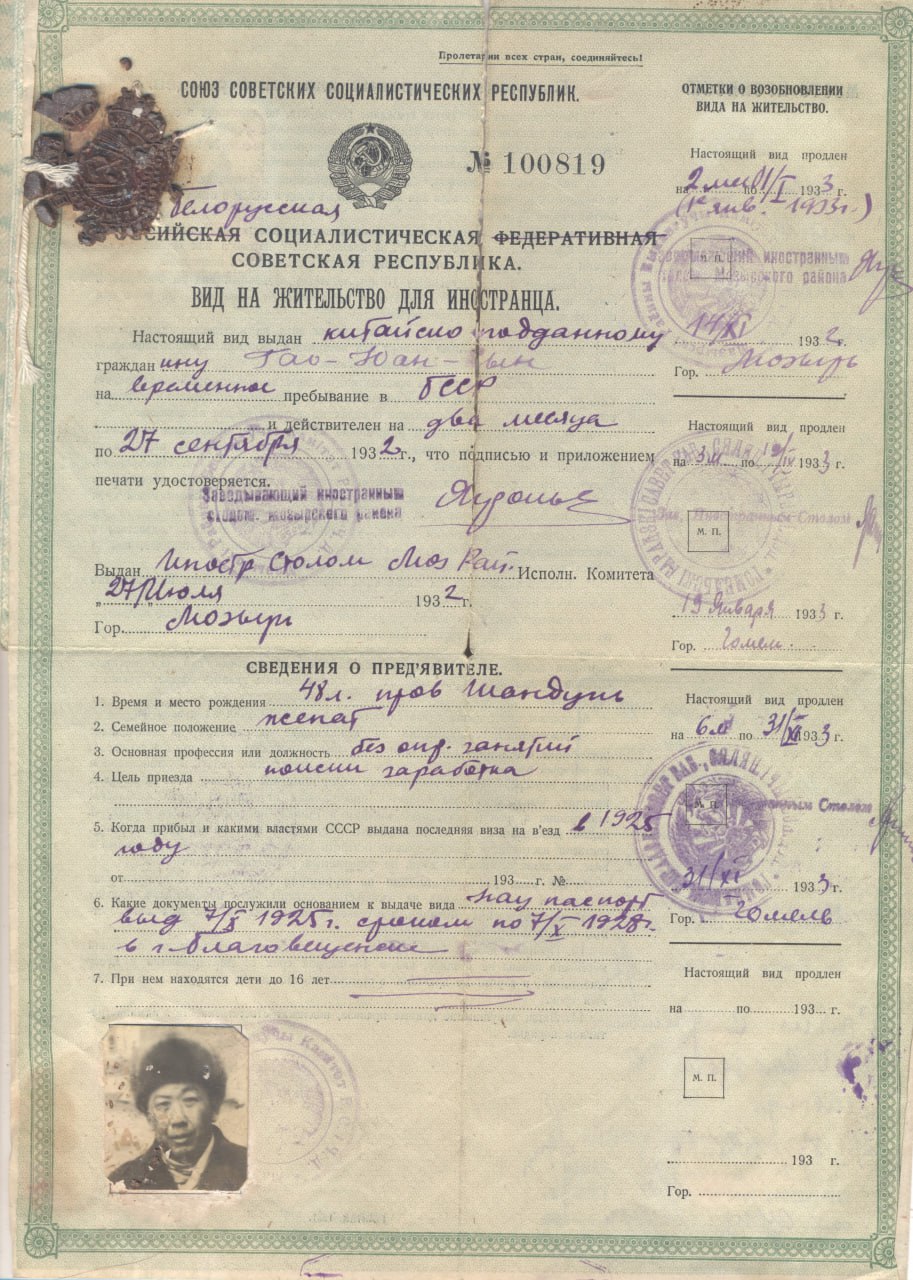 Пролетарии всех стран, соединяйтесь!
СОЮЗ СОВЕТСКИХ СОЦИАЛИСТИЧЕСКИХ РЕСПУБЛИК.
№ 100819
Белорусская
РОССИЙСКАЯ СОЦИАЛИСТИЧЕСКАЯ ФЕДЕРАТИВНАЯ
СОВЕТСКАЯ РЕСПУБЛИКА.
ВИД НА ЖИТЕЛЬСТВО ДЛЯ ИНОСТРАНЦА.
Настоящий вид выдан китайско-подданному
гражданину Гао-Юан-Сын
на временное пребывание в БССР
и действителен на два месяца
по 27 сентября 1932 г., что подписью и приложением
печати удостоверяется.
Заведывающий иностранным
столом Мозырского района
Выдан Иностр Столом Моз Рай. Исполн. Комитета
„27" Июля 1932 г.
Гор. Мозырь
СВЕДЕНИЯ О ПРЕД'ЯВИТЕЛЕ.
1. Время и место рождения 48 л. пров Шандунь
2. Семейное положение женат
3. Основная профессия или должность без опр. занятий
4. Цель приезда поиски заработка
5. Когда прибыл и какими властями СССР выдана последняя виза на в'езд в 1925
году
от 193 г. №
6. Какие документы послужили основанием к выдаче вида Нац паспорт
выд 7/X 1925 г. сроком по 7/X 1928 г.
в г. Благовещенске
7. При нем находятся дети до 16 лет
ОТМЕТКИ О ВОЗОБНОВЛЕНИИ
ВИДА НА ЖИТЕЛЬСТВО.
Настоящий вид продлен
на 2 мес по 1/I 1933 г.
(1 янв. 1933 г.)
М. П.
иностранным
Мозырского района
14/XI 1932 г.
Гор. Мозырь
Настоящий вид продлен
на 3 м. по 19/IV 1933 г.
М. П.
Зав. Иностранным Столом
19 Января 1933 г.
Гор. Гомель
Настоящий вид продлен
на 6 м по 31/XI 1933 г.
М. П.
Столом
31/XI 1933 г.
Гор. Гомель
Настоящий вид продлен
на по 193 г.
М. П.
193 г.
Гор.